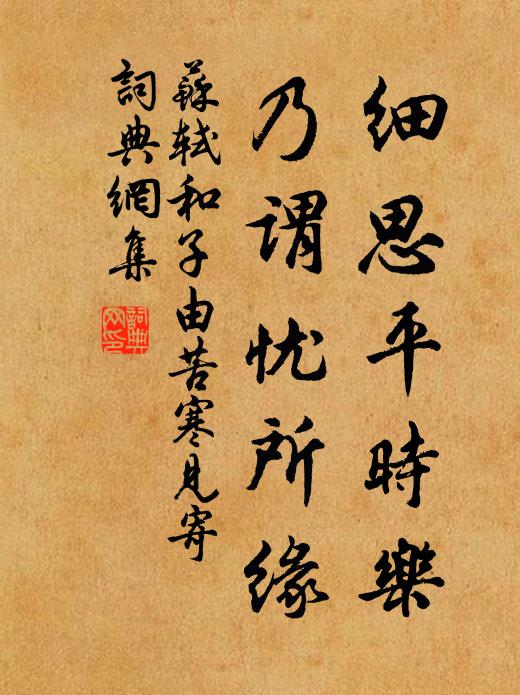 细思平時樂
乃谓忧所缘
蘇軾和子由苦寒見寄
詞典網集
詞典网印